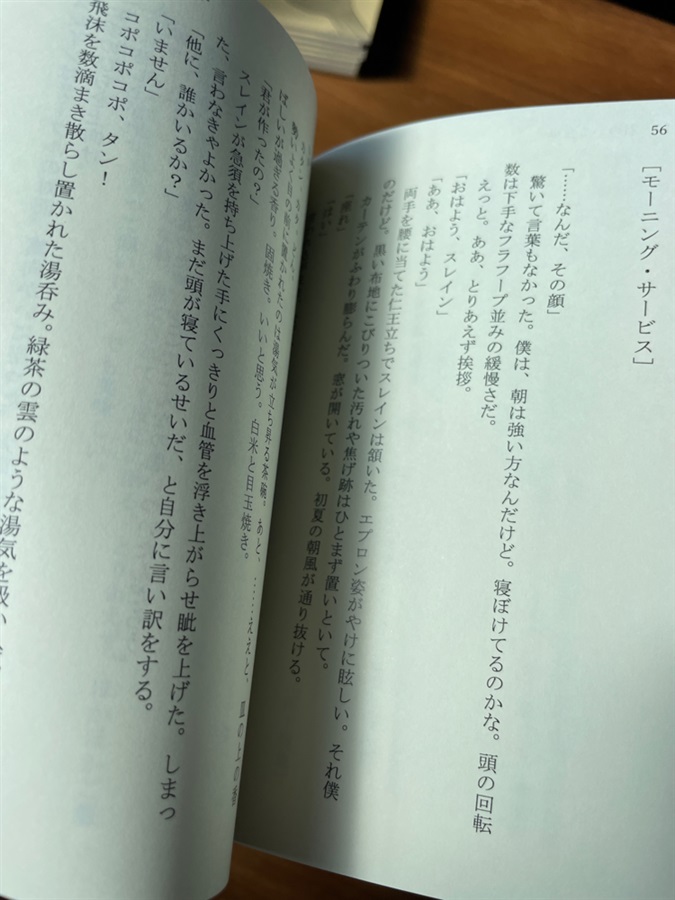 56
[モーニング・サービス]
「……なんだ、その顔」
驚いて言葉もなかった。僕は、朝は強い方なんだけど。寝ぼけてるのかな。頭の回転
数は下手なフラフープ並みの緩慢さだ。
えっと。ああ、とりあえず挨拶。
「おはよう、スレイン」
「ああ、おはよう」
両手を腰に当てた仁王立ちでスレインは頷いた。エプロン姿がやけに眩しい。それ僕
のだけど。黒い布地にこびりついた汚れや焦げ跡はひとまず置いといて。
カーテンがふわり膨らんだ。窓が開いている。初夏の朝風が通り抜ける。
「座れ」
「はい」
勢いよく目の前に置かれたのは湯気が立ち昇る茶碗。あと、……ええと、皿の上の香
ばしいが過ぎる香り。固焼き。いいと思う。白米と目玉焼き。
「君が作ったの?」
スレインが急須を持ち上げた手にくっきりと血管を浮き上がらせ眦を上げた。しまっ
た、言わなきゃよかった。まだ頭が寝ているせいだ、と自分に言い訳をする。
「他に、誰かいるか?」
「いません」
コポコポコポ、タン!
飛沫を数滴まき散らし置かれた湯呑み。緑茶の雲のような湯気を吸い